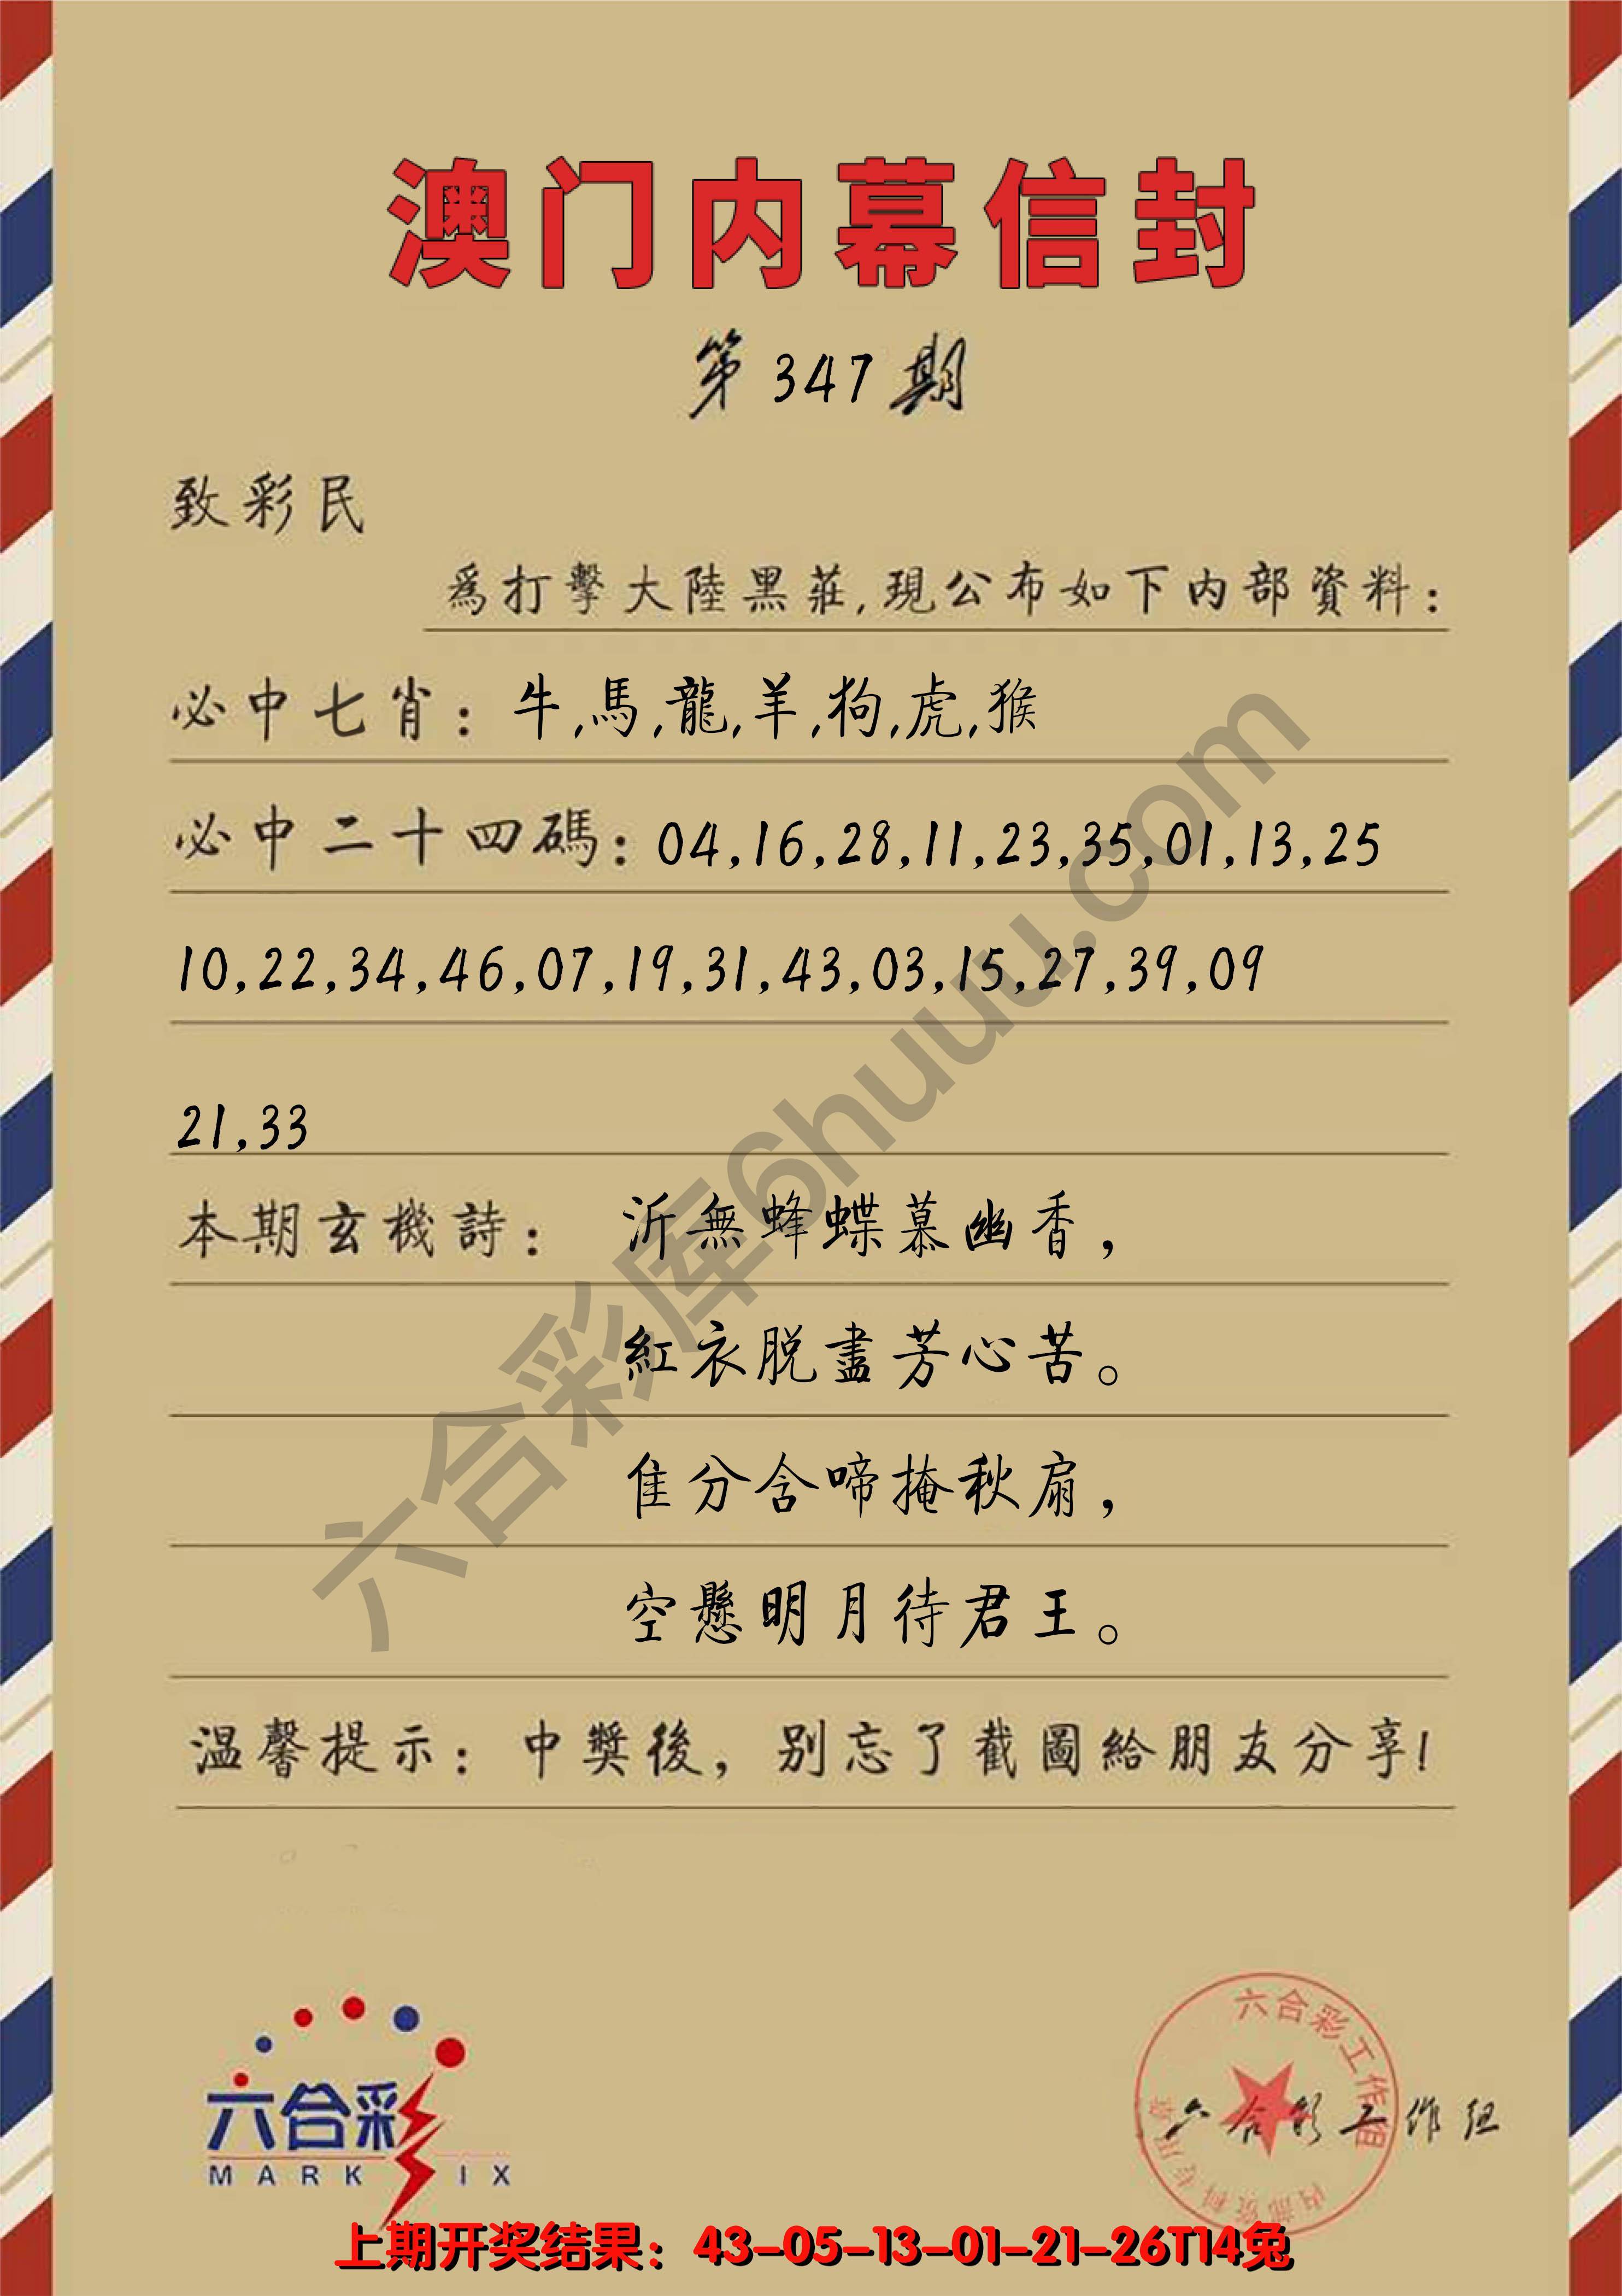 澳门内幕信封
第347期
致彩民
為打擊大陸黑莊,現公布如下内部資料:
必中七肖: 牛,馬,龍,羊,狗,虎,猴
必中二十四碼: 04,16,28,11,23,35,01,13,25
10,22,34,46,07,19,31,43,03,15,27,39,09
21,33
本期玄機詩: 沂無蜂蝶慕幽香,
紅衣脱盡芳心苦。
隹分含啼掩秋扇,
空懸明月待君王。
温馨提示: 中獎後, 别忘了截圖給朋友分享!
六合彩库6huuu.com
六合彩
MARK IX
六合彩工作组
六合彩工作组
上期开奖结果: 43-05-13-01-21-26T14兔